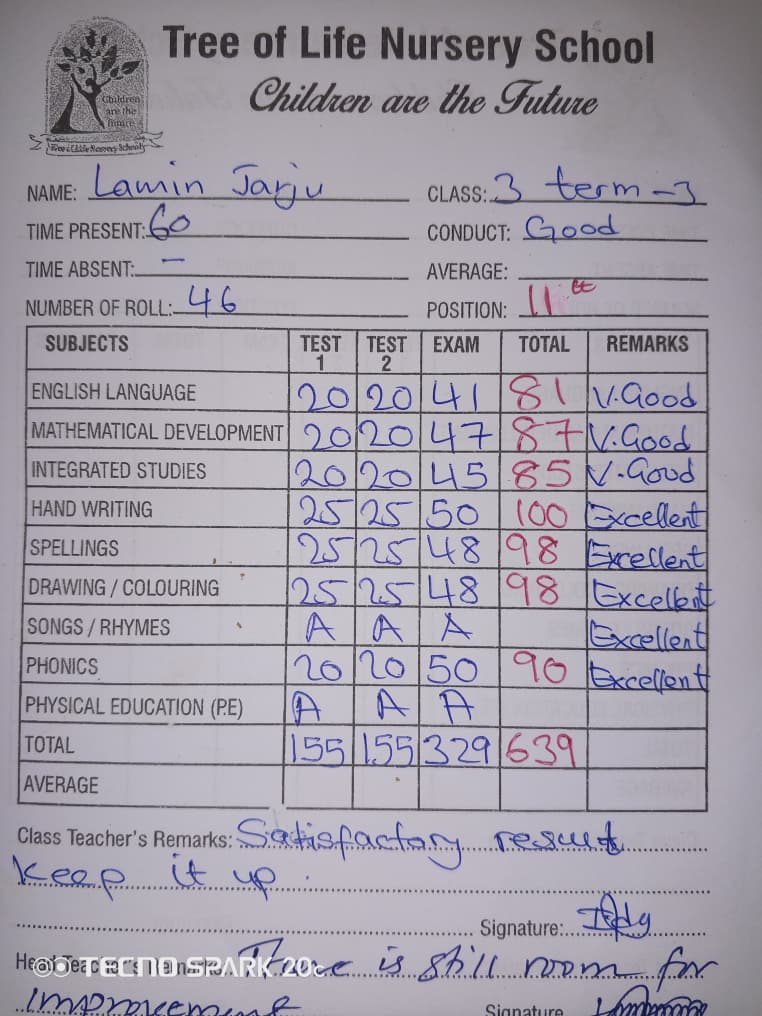 Tree of Life Nursery School
Children are the Future
Children
are the
future
Tree of Life Nursery School
NAME: Lamin Jarju CLASS: 3 term-3
TIME PRESENT: 60 CONDUCT: Good
TIME ABSENT: - AVERAGE:
NUMBER OF ROLL: 46 POSITION: 11th
SUBJECTS TEST 1 TEST 2 EXAM TOTAL REMARKS
ENGLISH LANGUAGE 20 20 41 81 V.Good
MATHEMATICAL DEVELOPMENT 20 20 47 87 V.Good
INTEGRATED STUDIES 20 20 45 85 V-Good
HAND WRITING 25 25 50 100 Excellent
SPELLINGS 25 25 48 98 Excellent
DRAWING / COLOURING 25 25 48 98 Excellent
SONGS / RHYMES A A A Excellent
PHONICS 20 20 50 90 Excellent
PHYSICAL EDUCATION (P.E) A A A
TOTAL 155 155 329 639
AVERAGE
Class Teacher's Remarks: Satisfactory result
keep it up.
Signature:
Head Teacher's Remarks: There is still room for
improvement Signature
TECNO SPARK 20c